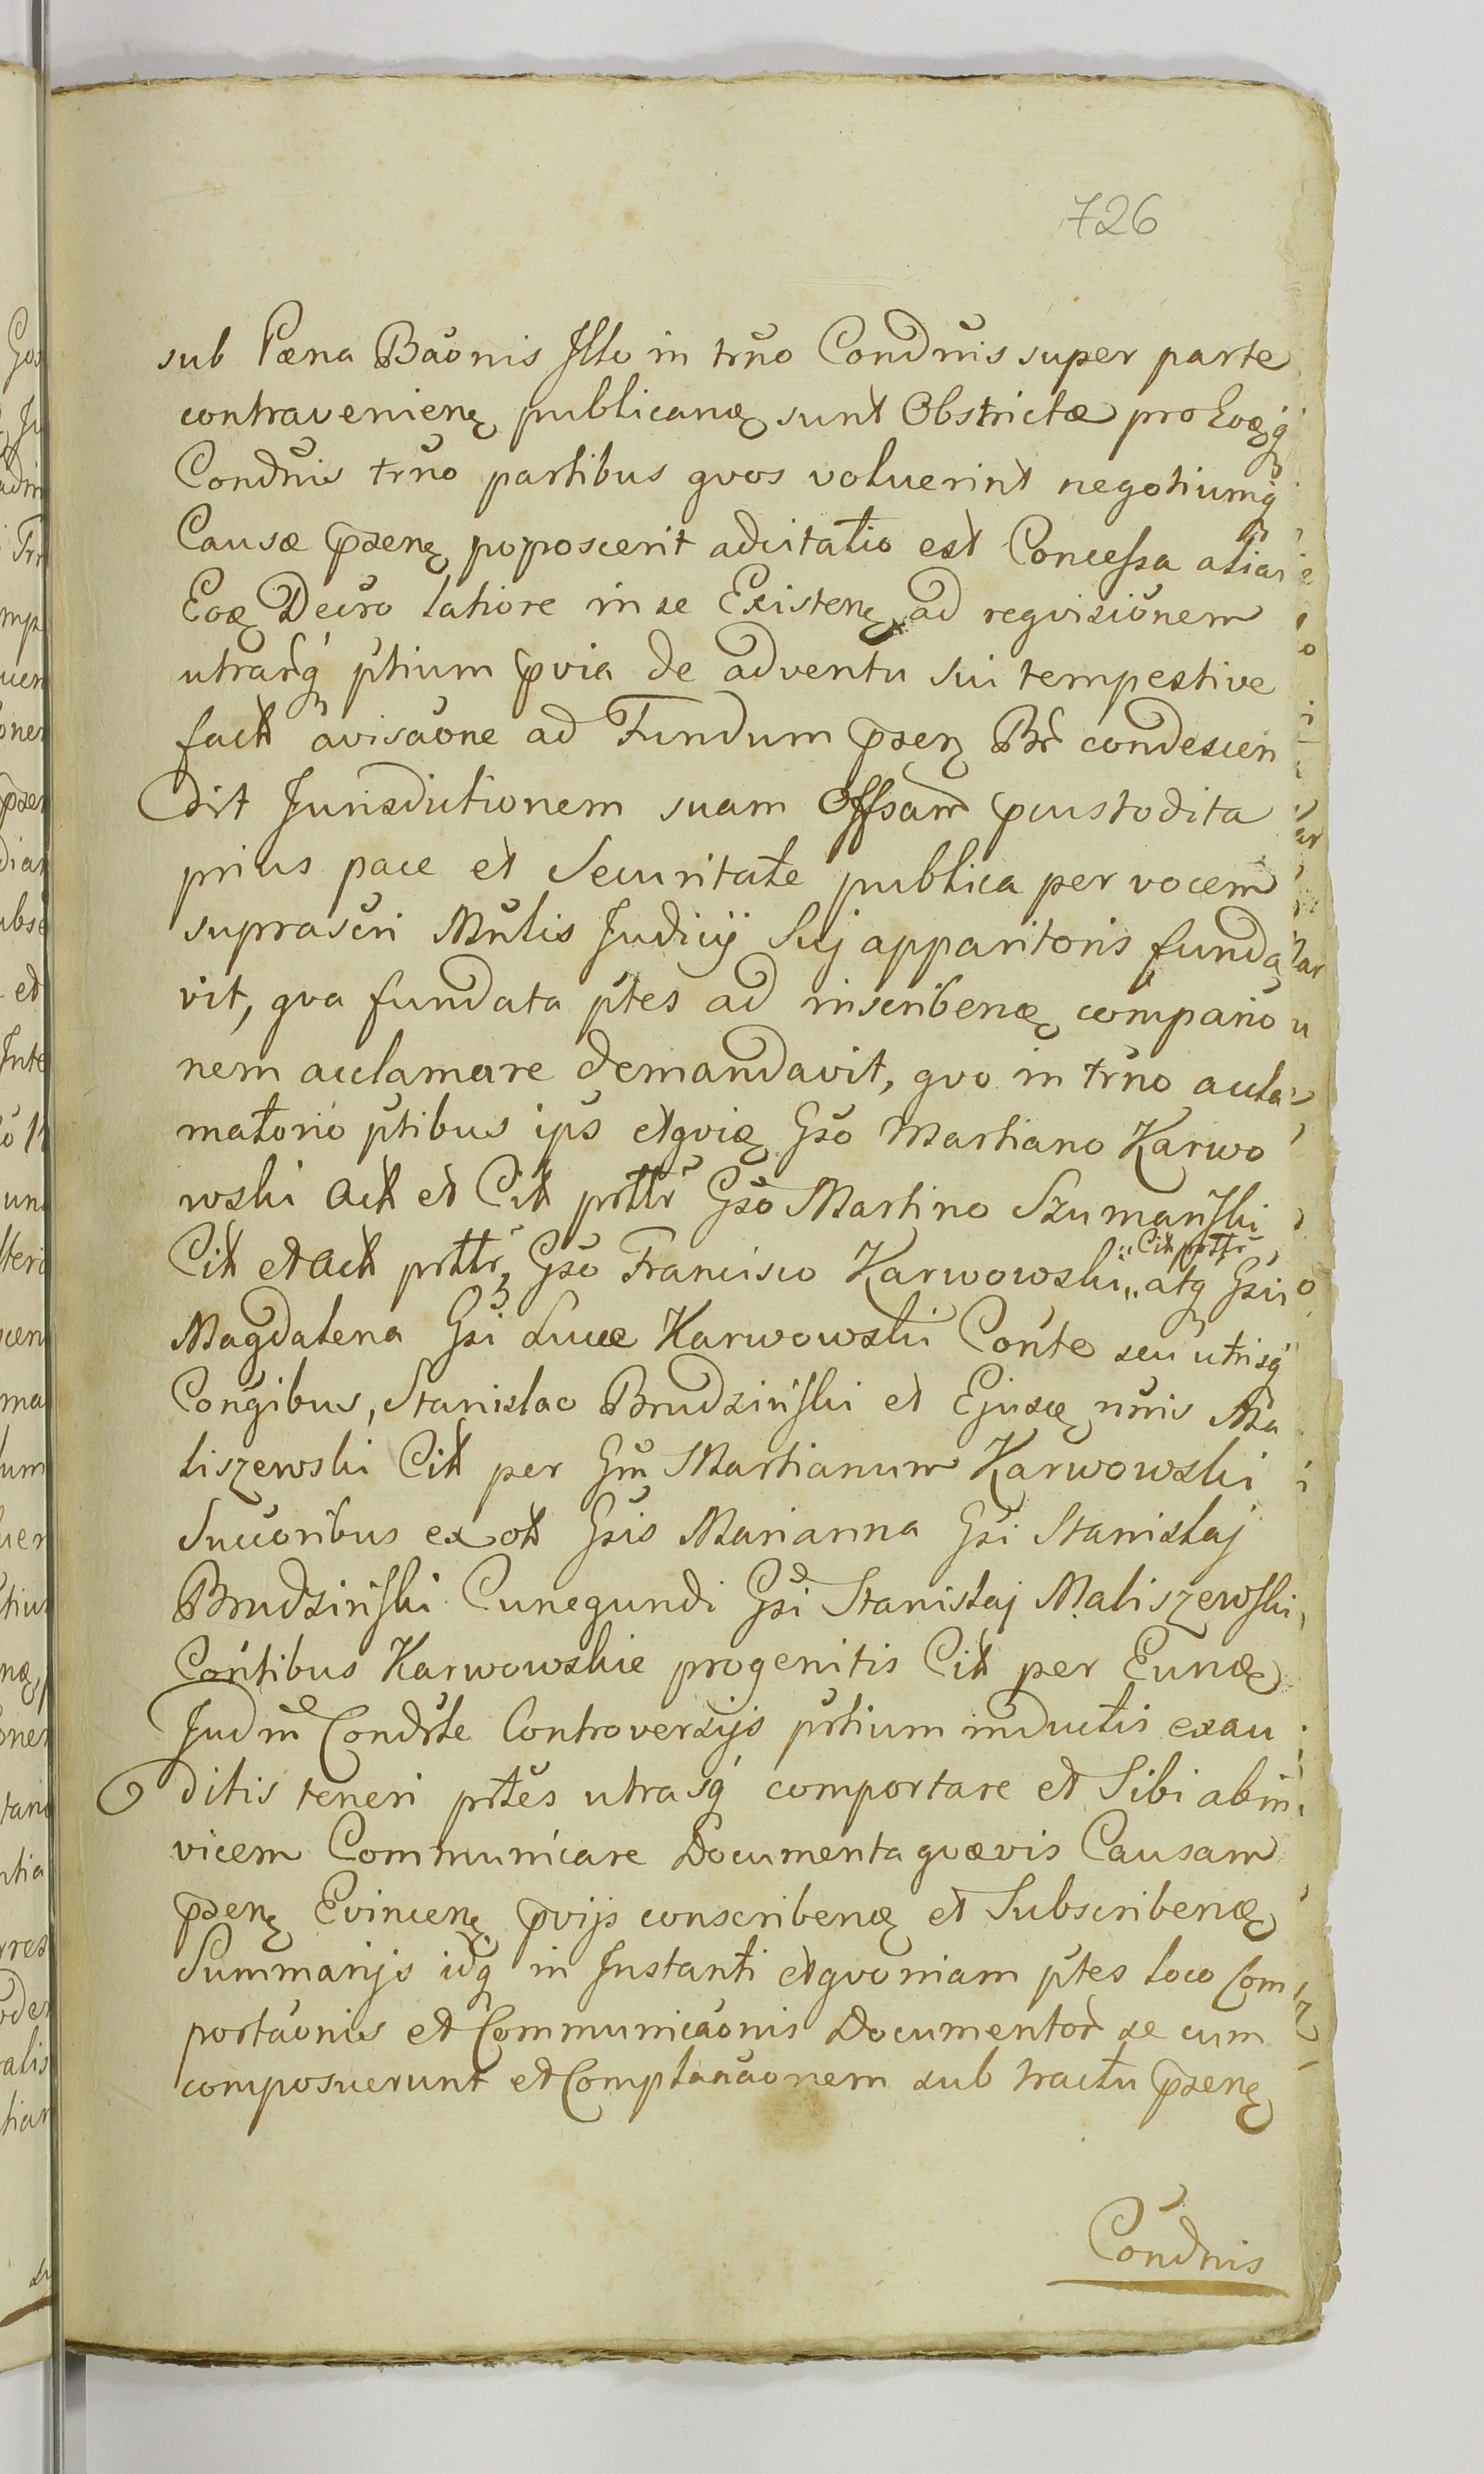 726
sub Pæna Baōnis Illo in trno Condnis super parte
contravenienę publicanæ sunt Obstrictæ pro Eoąq́
Condnis trno partibus qvos voluerint negotiumq́
Causæ p̄senę poposcerit adcitatio est Concessa alias
Eoę Decro latiore in se Existenę ad reqvisiōnem
utrarq́ ptium p̄via de adventu sui tempestive
fact avisaōne ad Fundum p̄senę Br̄ condescen
dit Jurisdictionem suam Offsam pcustodita
prius pace et Securitate publica per vocem
suprascri Mnlis Judicij Sui apparitoris funda
vit, qva fundata ptes ad inscribenæ compario
nem acclamare demandavit, qvo in trno accla
matorio ptibus ips etqvię Gso Martiano Karwo
wski Act et Cit prttr Gso Martino Szumański
Cit et Act prttr, Gso Francisco Karwowski „Cit prttr„ atq Gsi
Magdalena Gsi Lucæ Karwowski Conte seu utrisq́
Conģibus, Stanislao Brudziński et Ejusę nnis Ma
liszewski Cit per Gm Martianum Karwowski
Succoribus ex ot Gsis Marianna Gsi Stanislaj
Brudziński Cunegundi Gsi Stanislaj Maliszewski
Contibus Karwowskie progenitis Cit per Eunæ
Judm Condrle Controversijs prtium inductis exau
ditis teneri prtes utrasq́ comportare et Sibi abin
vicem Communicare Documenta qvævis Causam
p̄senę Evincenę p̄vijs conscribenæ et Subscribenæ
Summarijs idq́ in Instanti etqvoniam ptes loco Com
portaōnis et Communicaōnis Documentor se cum
composuerunt et Complanaōnem sub tractu p̄senę
Condnis